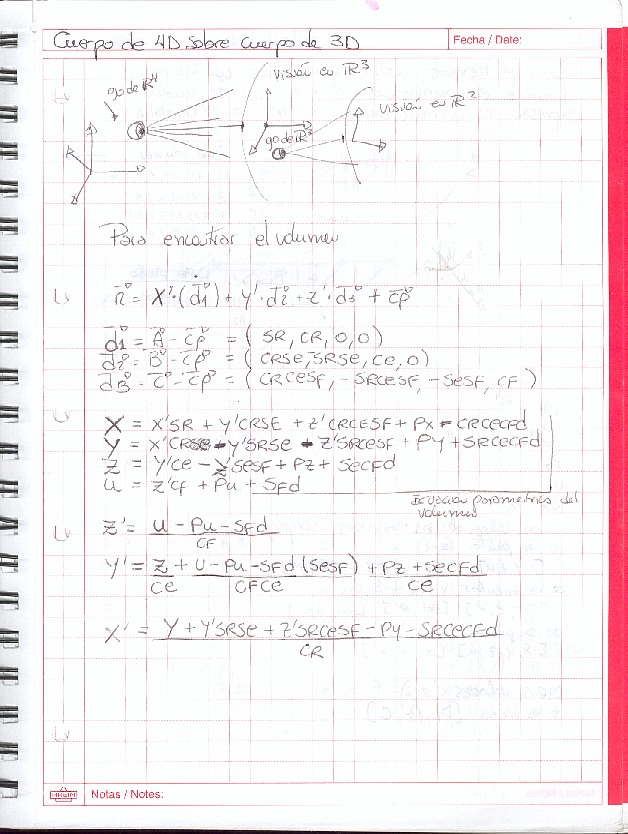 Cuerpo de 4D sobre cuerpo de 3D
Fecha / Date:
visión en R³
ojo de R⁴
visión en R²
ojo de R³
R
Para encontrar el volumen
n = X'·(d1) + Y'·d2 + z'·d3 + cp
d1 = A - cp = (SR, CR, 0, 0)
d2 = B - cp = (CRSE, -SRSE, CE, 0)
d3 = C - cp = (CRCESF, -SRCESF, -SESF, CF)
X = X'SR + Y'CRSE + Z'CRCESF + PX - CRCECFd
Y = X'CR - Y'SRSE - Z'SRCESF + PY + SRCECFd
Z = Y'CE - Z'SESF + PZ + SECFd
U = Z'CF + PU + SFd
Ecuación parametrica del
volumen
Z' = U - PU - SFd
CF
Y' = Z + U - PU - SFd (SESF) + PZ + SECFd
CE CFCE CE
X' = Y + Y'SRSE + Z'SRCESF - PY - SRCECFd
CR
Notas / Notes: